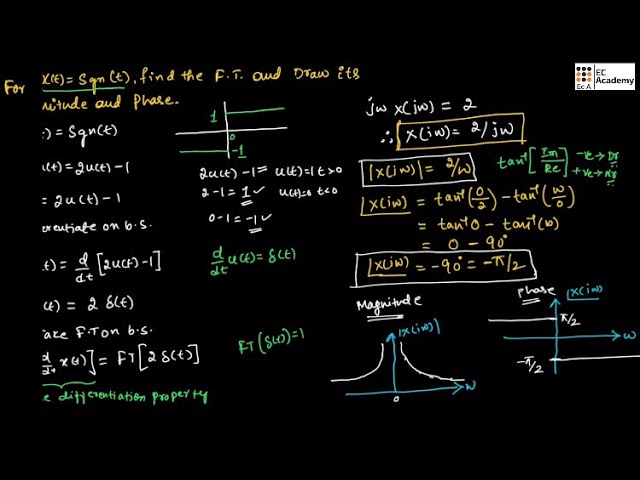 For x(t) = Sgn(t), find the F.T. and Draw its
nitude and Phase.
:) = Sgn(t)
(t) = 2u(t) - 1
= 2u(t) - 1
erentiate on b.s.
.t) = d/dt [2u(t) - 1]
(t) = 2 δ(t)
ake F.T on b.s.
d/dt x(t)] = FT[2 δ(t)]
e differentiation property
1
0
-1
2u(t) - 1 = u(t) = 1 t > 0
2 - 1 = 1 ✓ u(t) = 0 t < 0
0 - 1 = -1 ✓
d/dt u(t) = δ(t)
FT(δ(t)) = 1
jω X(jω) = 2
∴ X(jω) = 2/jω
|X(jω)| = 2/ω
tan⁻¹[Im/Re] -ve → Dr
+ve → Nr
∠X(jω) = tan⁻¹(0/2) - tan⁻¹(ω/0)
= tan⁻¹0 - tan⁻¹(∞)
= 0 - 90°
∠X(jω) = -90° = -π/2
Magnitude
|X(jω)|
ω
0
Phase
∠X(jω)
π/2
ω
-π/2
EC
Academy
Ec A